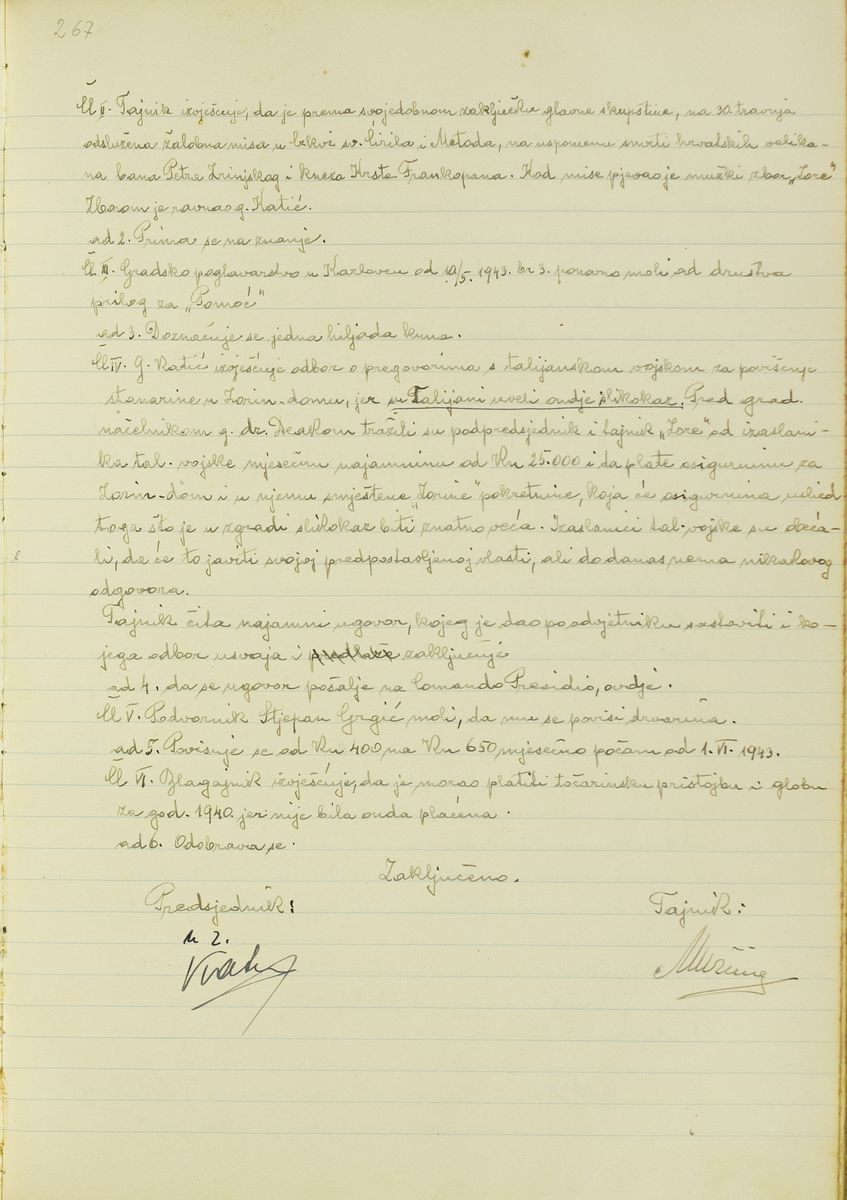 267
Čl II. Tajnik izvješćuje, da je prema svojedobnom zaključku glavne skupštine, na 30. travnja
odslužena žalobna misa u crkvi sv. Ćirila i Metoda, na uspomenu smrti hrvatskih velika-
na bana Petra Zrinjskog i kneza Krste Frankopana. Kod mise pjevao je mužki zbor „Zore"
Zborom je ravnao g. Katić.
ad 2. Prima se na znanje.
Čl III. Gradsko poglavarstvo u Karlovcu od 10/5. 1943. br 3. ponovno moli od družtva
prilog za „Pomoć"
ad 3. Doznačuje se jedna hiljada kuna.
Čl IV. G. Katić izvješćuje odbor o pregovorima s talijanskom vojskom za povišenje
stanarine u Zorin-domu, jer su Talijani uveli ondje slikokaz. Pred grad.
načelnikom g. dr. Deakom tražili su podpredsjednik i tajnik „Zore" od izaslani-
ka tal. vojske mjesečnu najamninu od Kn 25.000 i da plate osigurninu za
Zorin-dom i u njemu smještene „Zorine" pokretnine, koja će osigurnina uslied
toga što je u zgradi slikokaz biti znatno veća. Izaslanici tal. vojske su obeća-
li, da će to javiti svojoj predpostavljenoj vlasti, ali do danas nema nikakovog
odgovora.
Tajnik čita najamni ugovor, kojeg je dao po odvjetniku sastaviti i ko-
jega odbor usvaja i predlaže zaključuje
ad 4. da se ugovor pošalje na Comando Presidio, ovdje.
Čl V. Podvornik Stjepan Grgić moli, da mu se povisi dvorina.
ad 5. Povisuje se od Kn 400 na Kn 650 mjesečno počam od 1. VI. 1943.
Čl VI. Blagajnik izvješćuje, da je morao platiti točarinsku pristojbu i globu
za god. 1940. jer nije bila onda plaćena.
ad 6. Odobrava se.
Zaključeno.
Predsjednik:
Tajnik: